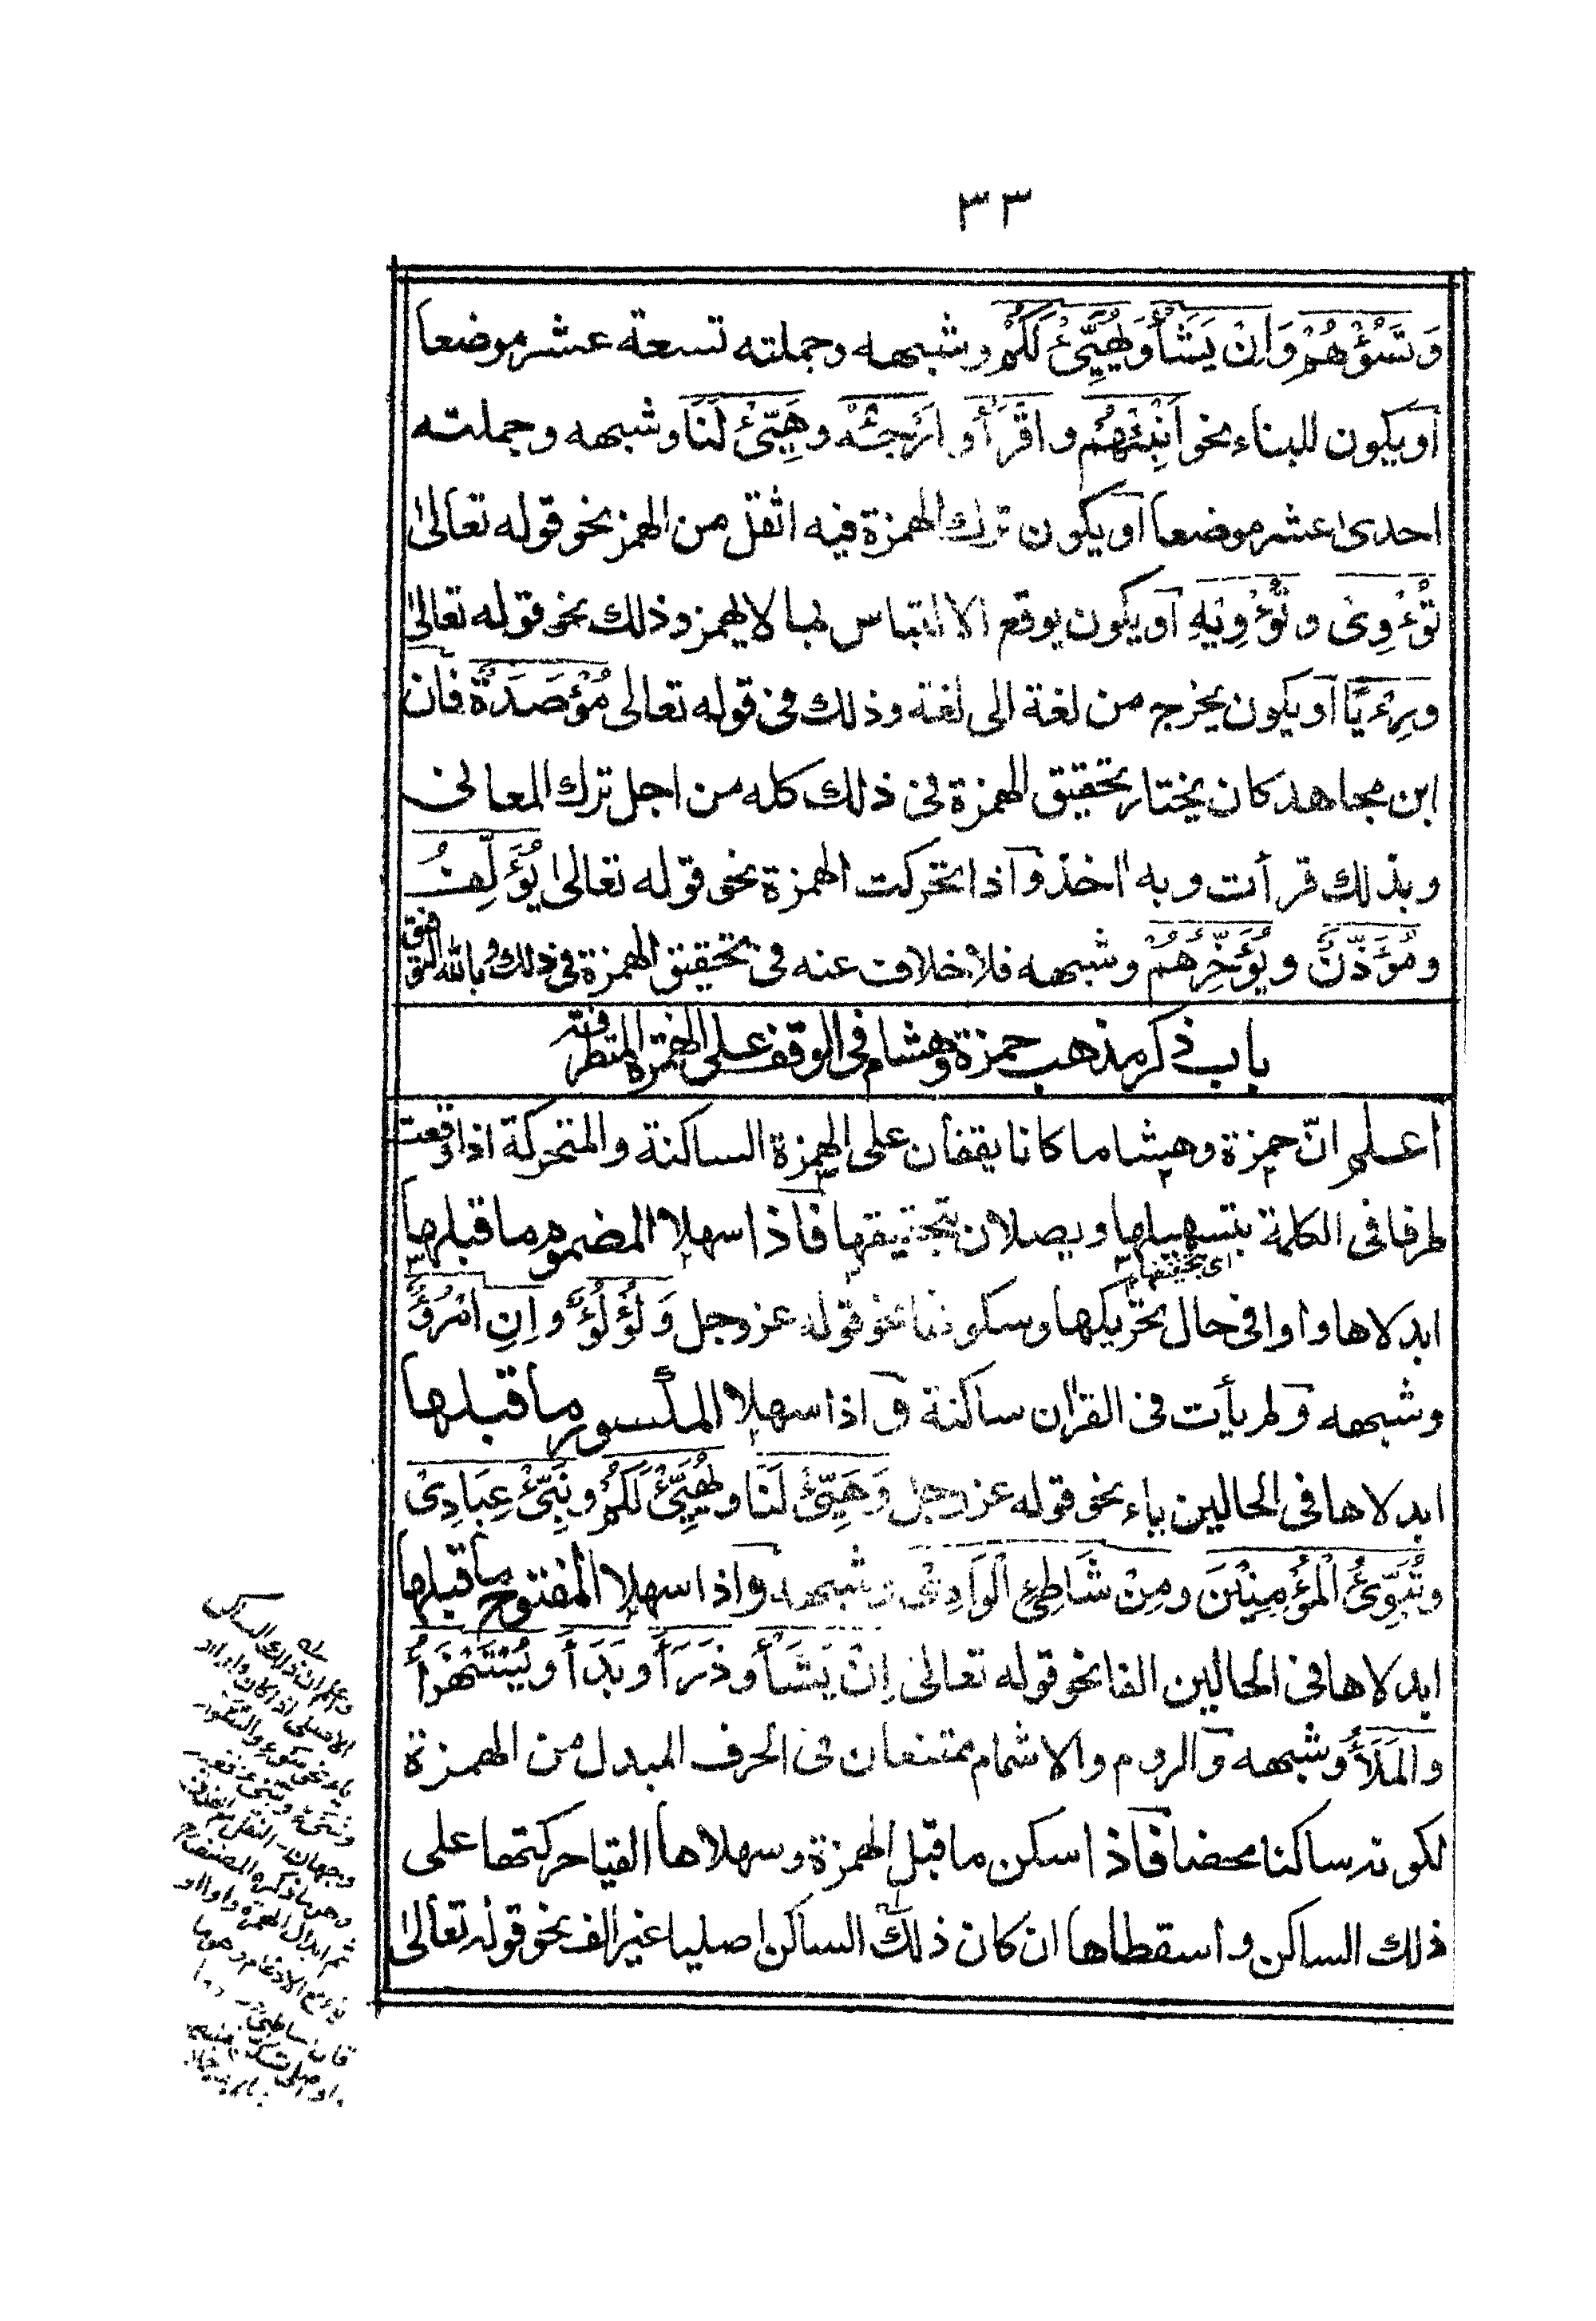 ٣٣
وَتَسُؤْهُمْ وَاِنْ يَشَأْ وَيُهَيِّئْ لَكُمْ وشبهه وجملته تسعة عشر موضعا
اَو يكون للبناء نحو اَنْبِئْهُمْ و اقْرَأْ و اَرْجِئْهُ و هَيِّئْ لَنَا وشبهه وجملته
احدىٰ عشر موضعا اَو يكون ترك الهمزة فيه اثقل من الهمز نحو قوله تعالىٰ
تُؤْوِىْ و تُؤْوِيْهِ اَو يكون يوقع الالتباس بما لا يهمز وذلك نحو قوله تعالىٰ
ورِءْيًا اَو يكون يخرج من لغة الى لغة وذلك فى قوله تعالى مُؤْصَدَةٌ فان
ابن مجاهد كان يختار تحقيق الهمزة فى ذلك كله من اجل ترك المعانى
وبذلك قرأت وبه اٰخذ وَاذا تحركت الهمزة نحو قوله تعالىٰ يُؤَلِّفُ
ومُؤَذِّنٌ و يُؤَخِّرُهُمْ وشبهه فلا خلاف عنه فى تحقيق الهمزة فى ذلك وبالله التوفيق
باب ذكر مذهب حمزة وهشام فى الوقف على الهمزة المتطرفة
اعلم انّ حمزة وهشاما كانا يقفان على الهمزة الساكنة والمتحركة اذا وقعت
طرفا فى الكلمة بتسهيلها ويصلان بتحقيقها فَاذا سهلا المضموم ما قبلها
اى بتخفيفها
ابدلاها واوا فى حال تحريكها وسكونها نحو قوله عزوجل وَلُؤْلُؤٌ و اِنِ امْرُؤٌ
وشبهه وَلم يأت فى القراٰن ساكنة وَاذا سهلا المكسور ما قبلها
ابدلاها فى الحالين ياء نحو قوله عزوجل وَهَيِّئْ لَنَا و يُهَيِّئْ لَكُمْ و نَبِّئْ عِبَادِىْ
وتُبَوِّئُ الْمُؤْمِنِيْنَ ومِنْ شَاطِئِ الْوَادِىْ وشبهه وَاذا سهلا المفتوح ما قبلها
ابدلاها فى الحالين الفا نحو قوله تعالىٰ اِنْ يَشَأْ و ذَرَأَ و بَدَأَ و يُسْتَهْزَأُ
والْمَلَأُ وشبهه وَالروم والاشمام ممتنعان فى الحرف المبدل من الهمزة
لكونه ساكنا محضا فَاذا سكن ما قبل الهمزة وسهلاها القيا حركتها على
ذلك الساكن و اسقطاها ان كان ذلك الساكن اصليا غير الف نحو قوله تعالىٰ